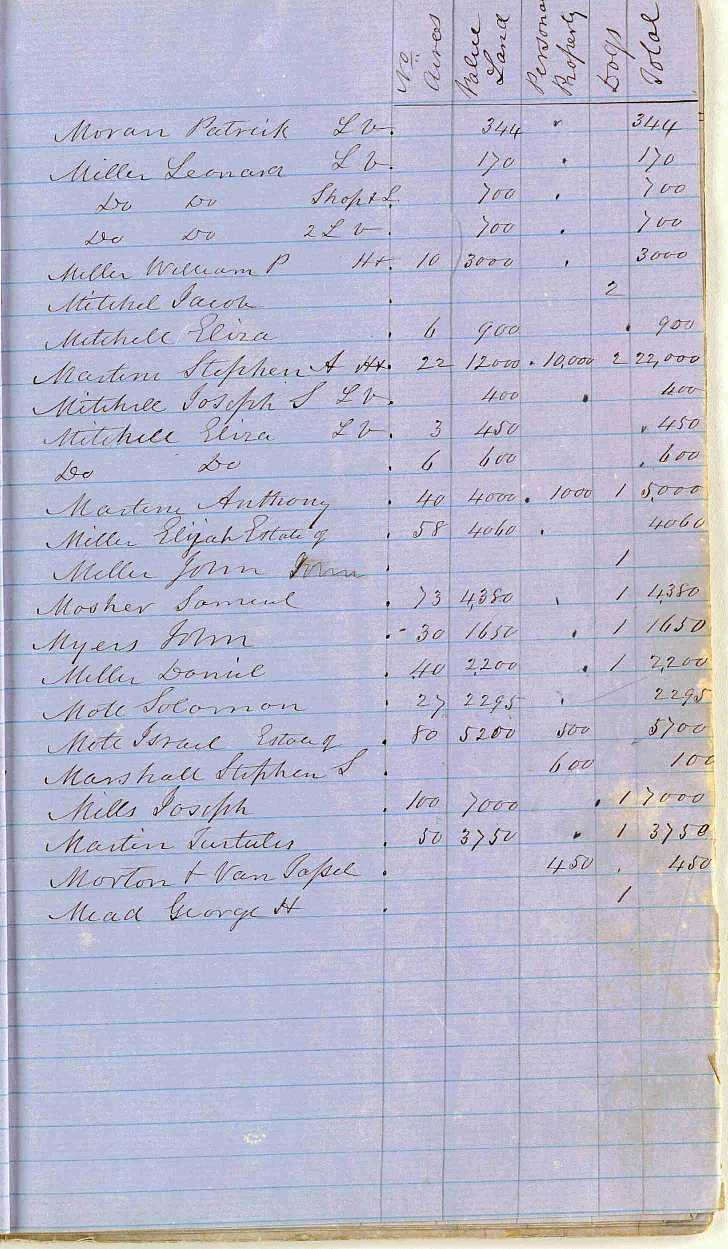 No Acres Value Land Personal Property Dogs Total
Moran Patrick L V. 344 " 344
Miller Leonard L V. 170 . 170
Do Do Shop & L. 700 . 700
Do Do 2 L V. 700 . 700
Miller William P Hx. 10 3000 . 3000
Mitchel Jacob . 2
Mitchell Eliza . 6 900 . 900
Martine Stephen A Hx. 22 12000 . 10,000 2 22,000
Mitchell Joseph S L V. 400 . 400
Mitchell Eliza L V. 3 450 . 450
Do Do . 6 600 . 600
Martine Anthony . 40 4000 . 1000 1 5,000
Miller Elijah Estate of . 58 4060 . 4060
Miller John John . 1
Mosher Samuel . 73 4,380 . 1 4,380
Myers John . - 30 1650 . 1 1650
Miller Daniel . 40 2,200 . 1 2,200
Mott Solomon . 27 2295 . 2295
Mott Israel Estate of . 80 5200 500 5700
Marshall Stephen S . 600 100
Mills Joseph . 100 7000 . 1 7000
Martin . 50 3750 . 1 3750
Morton & Van Tassel . 450 . 450
Mead George H . 1